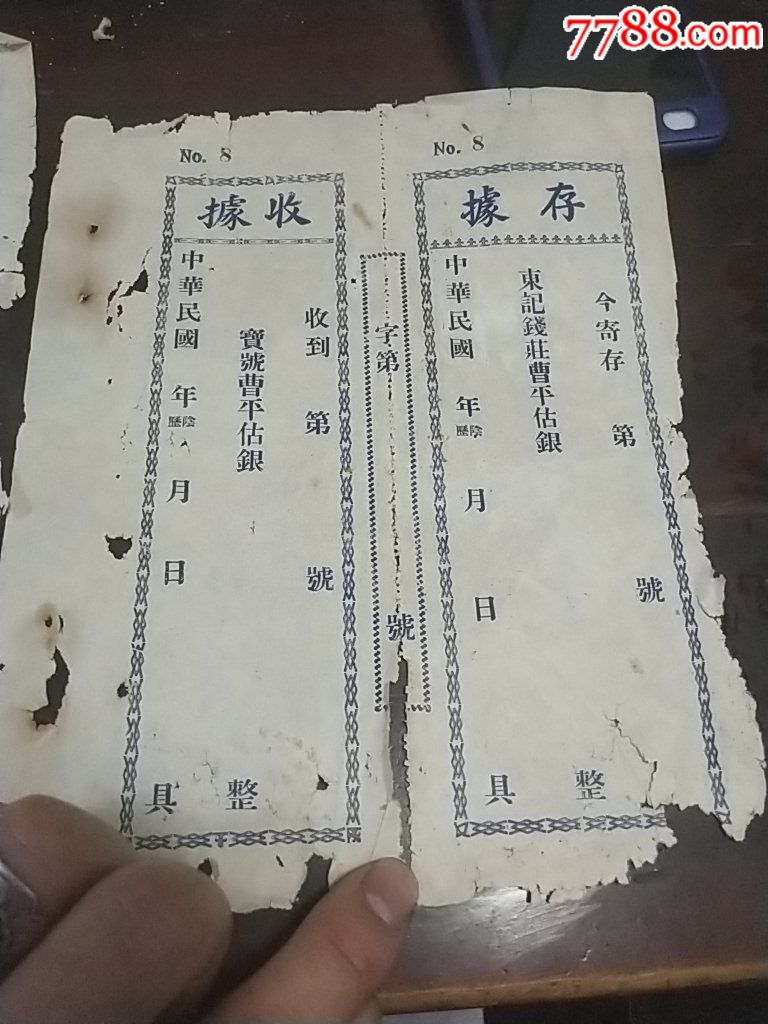 7788.com
No. 8
存據
今寄存 第 號
東記錢莊曹平估銀 整
中華民國 年 陰歷 月 日 具
字第 號
No. 8
收據
收到 第 號
寶號曹平估銀 整
中華民國 年 陰歷 月 日 具